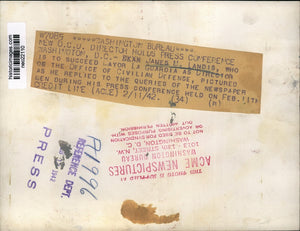 W7085 WASHINGTON BUREAU
NEW O.C.D. DIRECTOR HOLDS PRESS CONFERENCE
WASHINGTON, D.C.-- DEAN JAMES M. LANDIS, WHO
IS TO SUCCEED MAYOR LA GUARDIA AS DIRECTOR
OF THE OFFICE OF CIVILIAN DEFENSE, PICTURED
AS HE REPLIED TO THE QUERIES OF THE NEWSPAPER
MEN DURING HIS PRESS CONFERENCE HELD ON FEB. 11TH
CREDIT LINE (ACME) 2/11/42 (34)
historicimages.com
PRESS
REFERENCE DEPT.
1942
A1996
THIS PHOTO IS SUPPLIED BY
ACME NEWSPICTURES
WASHINGTON BUREAU
1013 - 13th STREET, N.W.
WASHINGTON, D. C.
NOT TO BE USED FOR
OR ADVERTISING PURPOSES WITH-
OUT WRITTEN PERMISSION